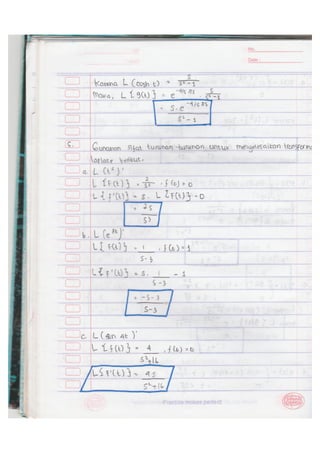 No.
Date :
Karena L (cosh t) = s / s²-1
maka, L {g(t)} = e s / s²-1
= s.e / s²-1
5. Gunakan sifat turunan-turunan untuk menyelesaikan transformasi
laplace berikut.
a. L (t²)'
L {F(t)} = 2/s³ . f(0) = 0
L {F'(t)} = s. L {F(t)} - 0
= 2s / s³
b. L (e³ᵗ)'
L {F(t)} = 1 / s-3 , f(0) = 1
L{F'(t)} = s. 1 / s-3 - 1
= -s-3 / s-3
c. L (sin 4t)'
L {f(t)} = 4 / s²+16 , f(0) = 0
L{F'(t)} = 4s / s²+16
Practice makes perfect